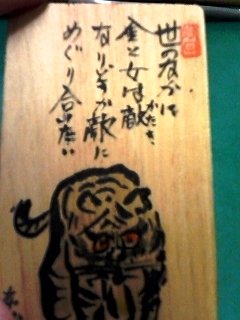 世の中は
金と女は敵
かたき
なりどうか敵に
めぐり合たい